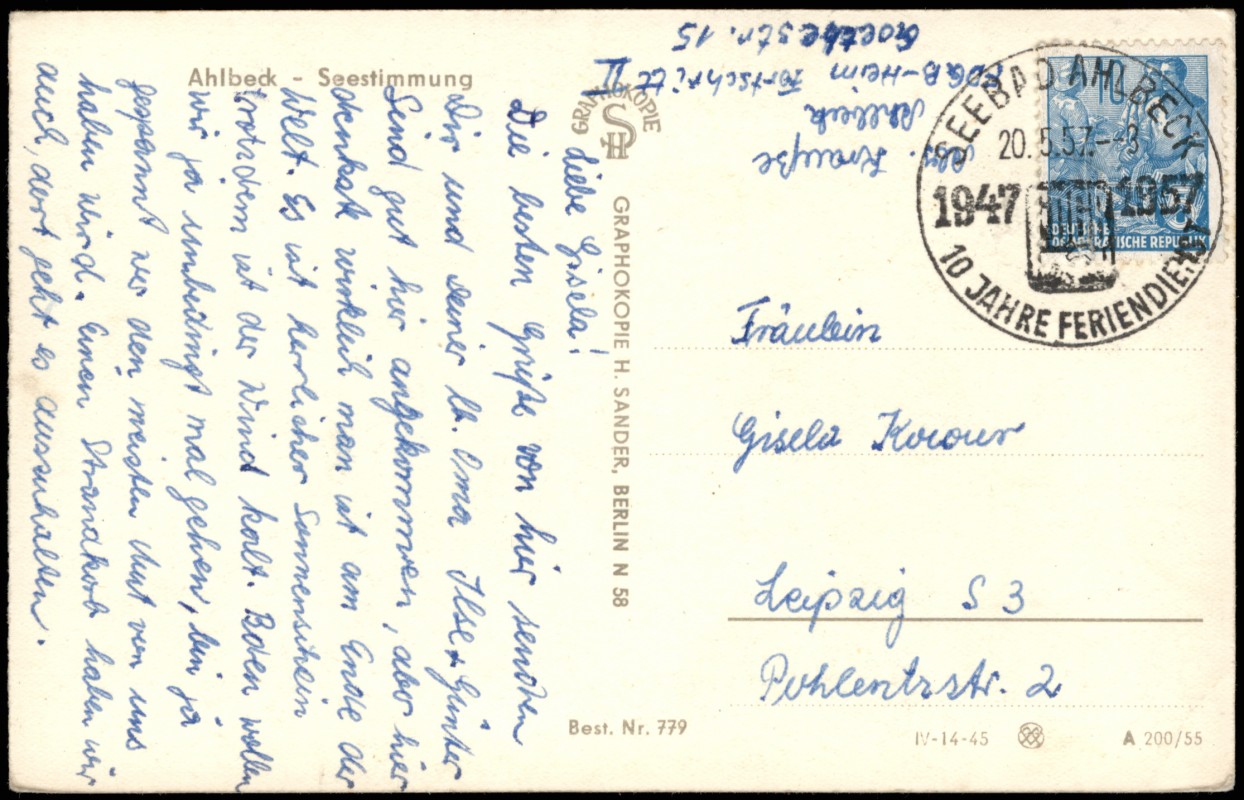 Ahlbeck - Seestimmung
Liebe Gisela!
Die besten Grüße von hier senden
Dir und deiner lb. Oma Ilse + Günter
Sind gut hier angekommen, aber hier
denkste wirklich man ist am Ende der
Welt. Es ist herrlicher Sonnenschein
trotzdem ist der Wind kalt. Baden wollen
wir ja unbedingt mal gehen, bin ja
gespannt wer den meisten Mut von uns
haben wird. Einen Strandkorb haben wir
auch, dort geht es auszuhalten.
GRAPHOKOPIE
SH
GRAPHOKOPIE H. SANDER, BERLIN N 58
Best. Nr. 779
Krauße
Ahlbeck
FDGB-Heim Fortschritt II
Goethestr. 15
SEEBAD AHLBECK
20.5.57.--8
1947 1957
10 JAHRE FERIENDIENST
10
DEUTSCHE
DEMOKRATISCHE REPUBLIK
Fräulein
Gisela
Leipzig S 3
Pohlentzstr. 2
IV-14-45
A 200/55